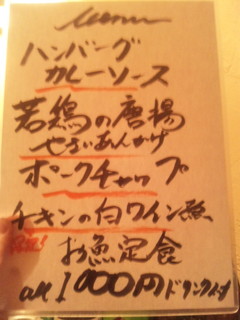 Menu
ハンバーグ
カレーソース
若鶏の唐揚
やさいあんかけ
ポークチャップ
チキンの白ワイン煮
お魚定食
all 1000円 ドリンク付